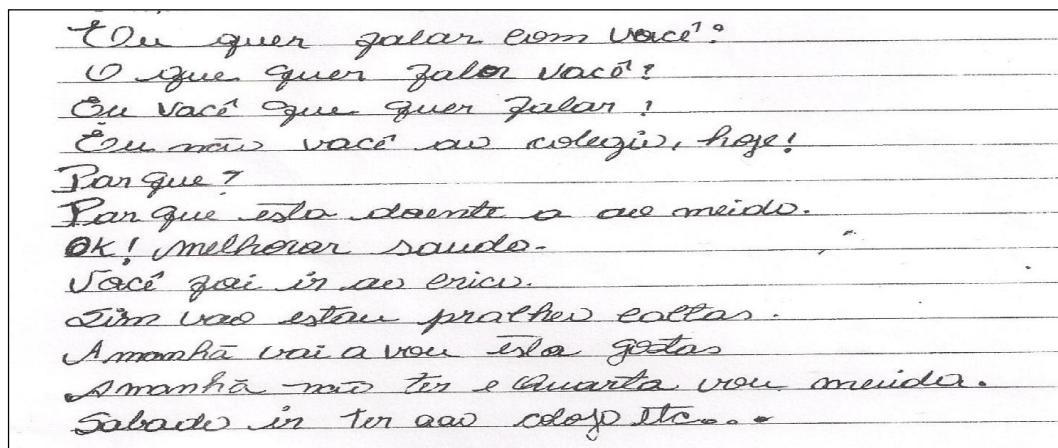 Eu quer falar com você?
O que quer falar você?
Eu você que quer falar!
Eu não você ao colegio, hoje!
Por que?
Por que esta doente o ao meido.
OK! melhorar saudo.
Você fai ir ao erico.
Sim vao estau pralheo coltas.
Amanhã vai a vou esta gostas
Amanhã não ter e Quarta vou meido.
Sabado ir ter aao colojo etc...